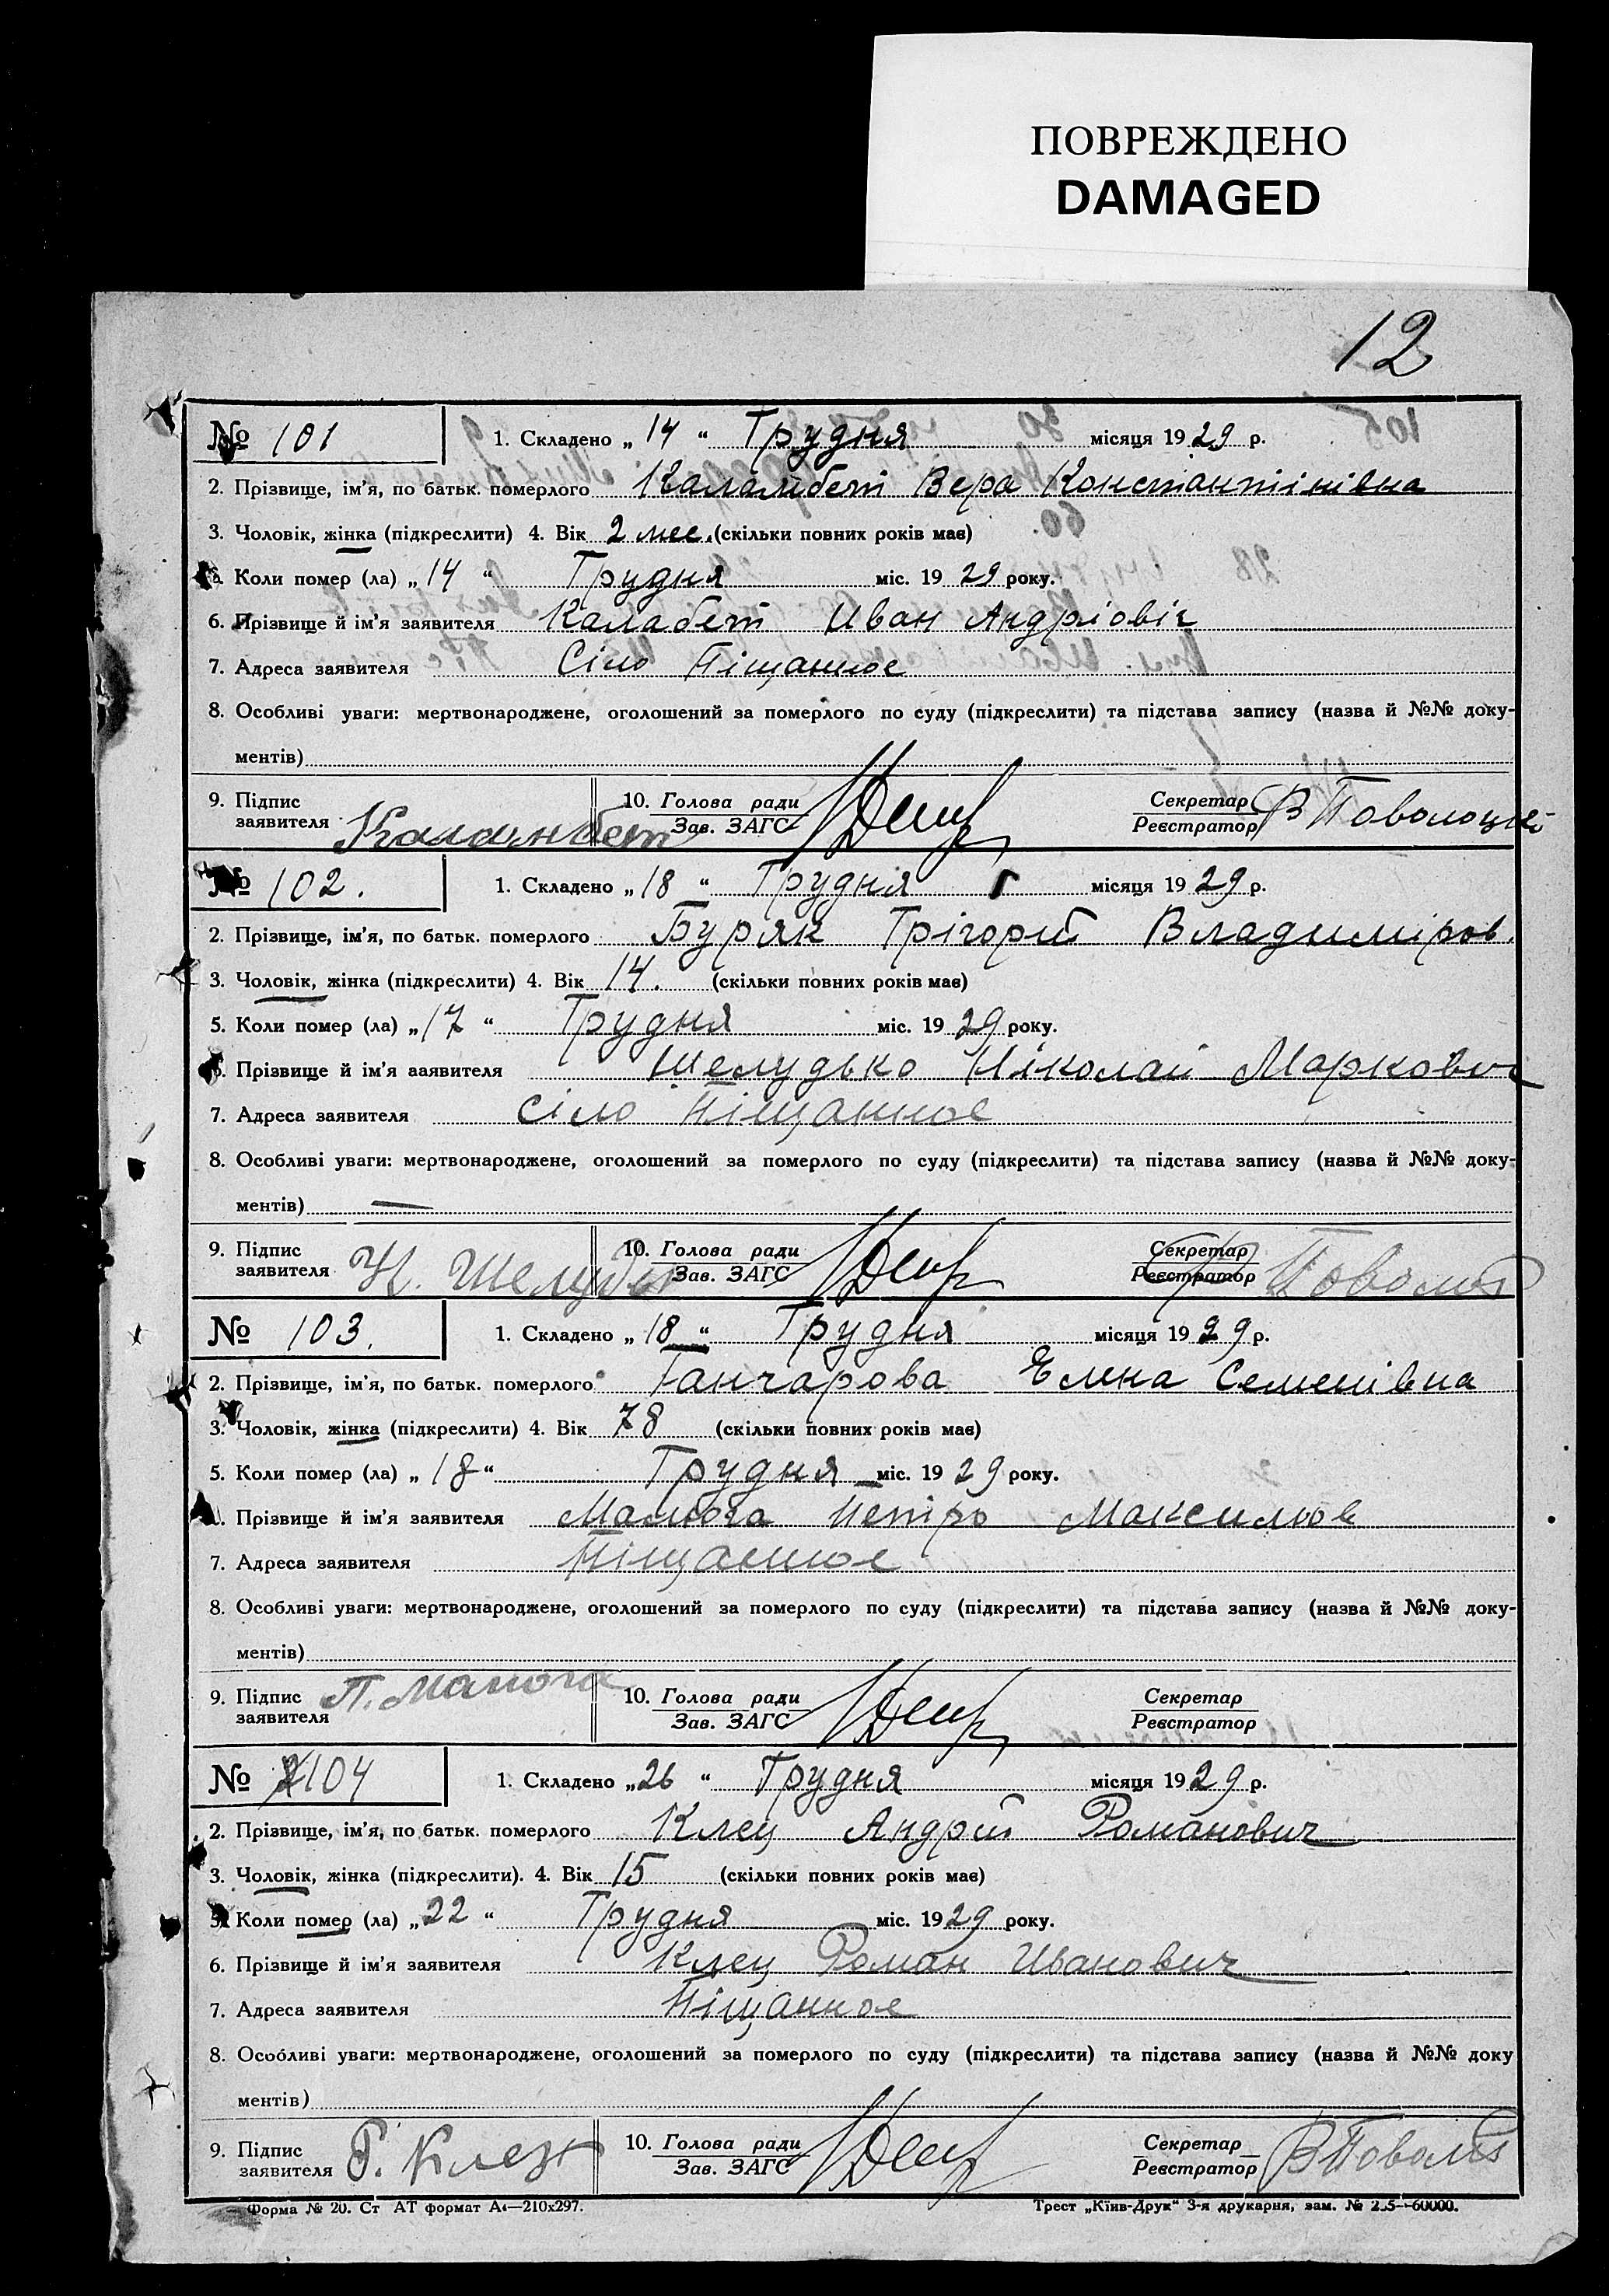 ПОВРЕЖДЕНО
DAMAGED
12
№ 101 1. Складено „ 14 “ Грудня місяця 1929 р.
2. Прізвище, ім'я, по батьк. померлого Каламбет Вера Константінівна
3. Чоловік, жінка (підкреслити) 4. Вік 2 мес. (скільки повних років має)
Коли помер (ла) „ 14 “ Грудня міс. 1929 року.
6. Прізвище й ім'я заявителя Калабет Иван Андріовіч
7. Адреса заявителя Сіло Піщанное
8. Особливі уваги: мертвонароджене, оголошений за померлого по суду (підкреслити) та підстава запису (назва й №№ доку-
ментів)
9. Підпис заявителя Каламбет 10. Голова ради Зав. ЗАГС Секретар Реєстратор
№ 102. 1. Складено „ 18 “ Грудня місяця 1929 р.
2. Прізвище, ім'я, по батьк. померлого Буряк Грігорій Владиміров.
3. Чоловік, жінка (підкреслити) 4. Вік 14. (скільки повних років має)
5. Коли помер (ла) „ 17 “ Грудня міс. 1929 року.
6. Прізвище й ім'я заявителя Шелудько Ніколай Маркович
7. Адреса заявителя Сіло Піщанное
8. Особливі уваги: мертвонароджене, оголошений за померлого по суду (підкреслити) та підстава запису (назва й №№ доку-
ментів) —
9. Підпис заявителя 10. Голова ради Зав. ЗАГС Секретар Реєстратор
№ 103. 1. Складено „ 18 “ Грудня місяця 1929 р.
2. Прізвище, ім'я, по батьк. померлого Ганчарова Елена Семенівна
3. Чоловік, жінка (підкреслити) 4. Вік 78 (скільки повних років має)
5. Коли помер (ла) „ 18 “ Грудня міс. 1929 року.
Прізвище й ім'я заявителя Малюга Петро Максимов
7. Адреса заявителя Піщанное
8. Особливі уваги: мертвонароджене, оголошений за померлого по суду (підкреслити) та підстава запису (назва й №№ доку-
ментів)
9. Підпис заявителя П. Малюга 10. Голова ради Зав. ЗАГС Секретар Реєстратор
№ 104 1. Складено „ 26 “ Грудня місяця 1929 р.
2. Прізвище, ім'я, по батьк. померлого Клец Андрій Романович
3. Чоловік, жінка (підкреслити). 4. Вік 15 (скільки повних років має)
5. Коли помер (ла) „ 22 “ Грудня міс. 1929 року.
6. Прізвище й ім'я заявителя Клец Роман Иванович
7. Адреса заявителя Піщанное
8. Особливі уваги: мертвонароджене, оголошений за померлого по суду (підкреслити) та підстава запису (назва й №№ доку
ментів)
9. Підпис заявителя Р. 10. Голова ради Зав. ЗАГС Секретар Реєстратор
Форма № 20. Ст АТ формат А4—210х297. Трест „Київ-Друк“ 3-я друкарня, зам. №